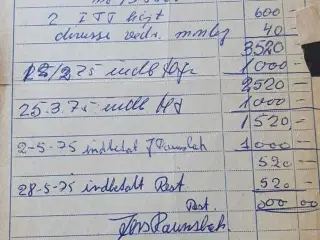 2 ITT højt 600
diverse vedr. montag 40
3520
25/2.75 indb 1000 -
2520
25.3.75 indb 1000 -
1520,-
2-5-75 indbetalt J Raunsbæk 1000 -
520 -
28-5-75 indbetalt Rest. 520 -
Rest. 000 00
Jens Raunsbæk